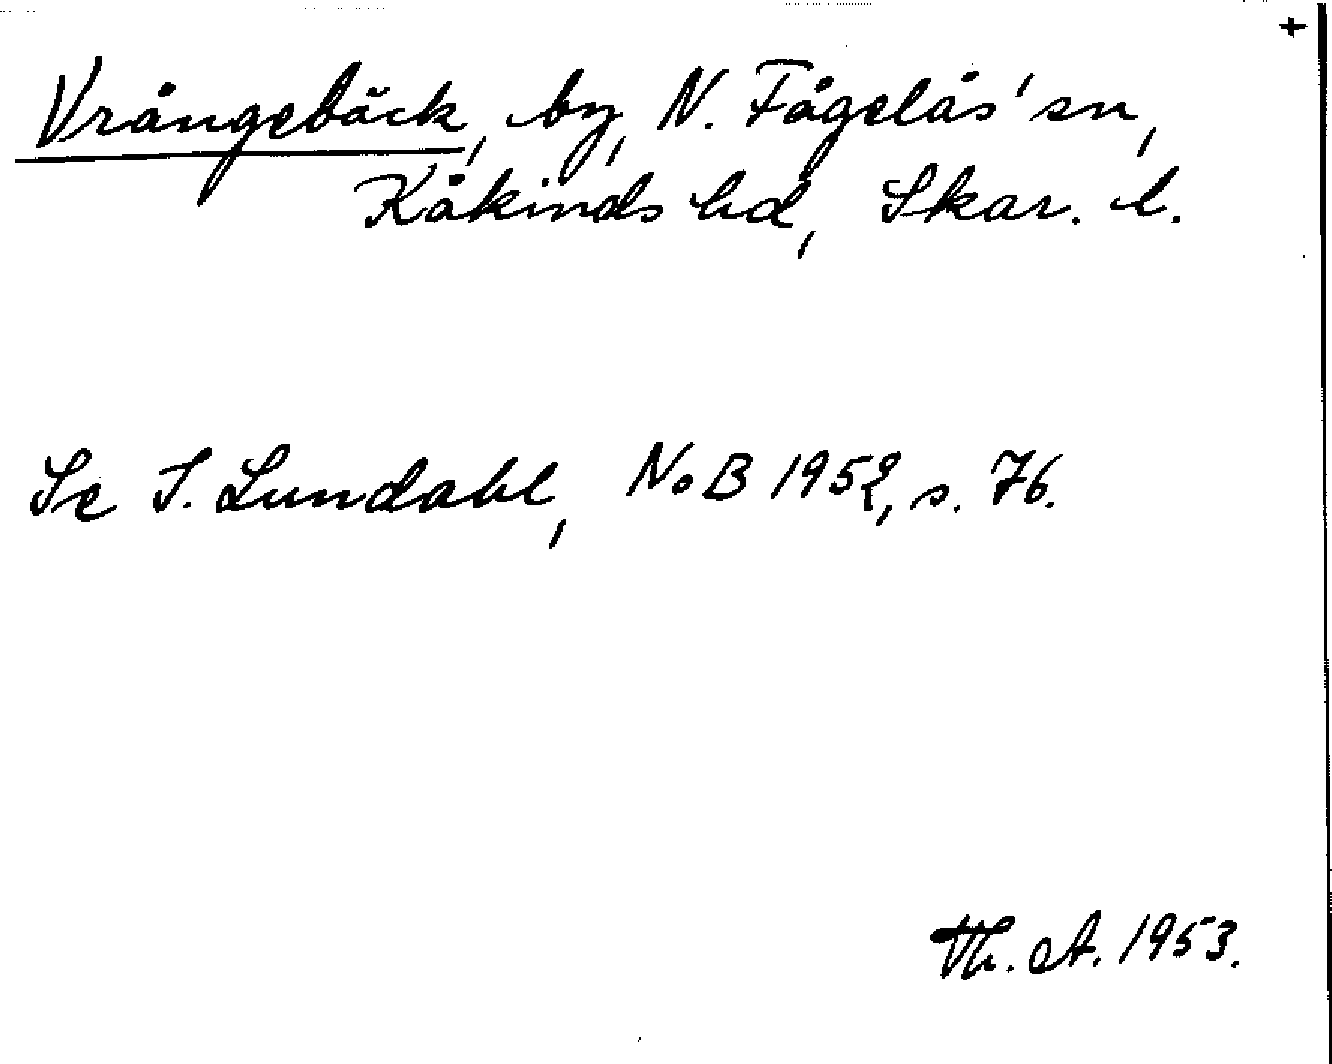 +
Vrångebäck, by, N. Fågelås' sn,
Kåkinds hd, Skar. l.
Se I. Lundahl, NoB 1952, s. 76.
Th. A. 1953.